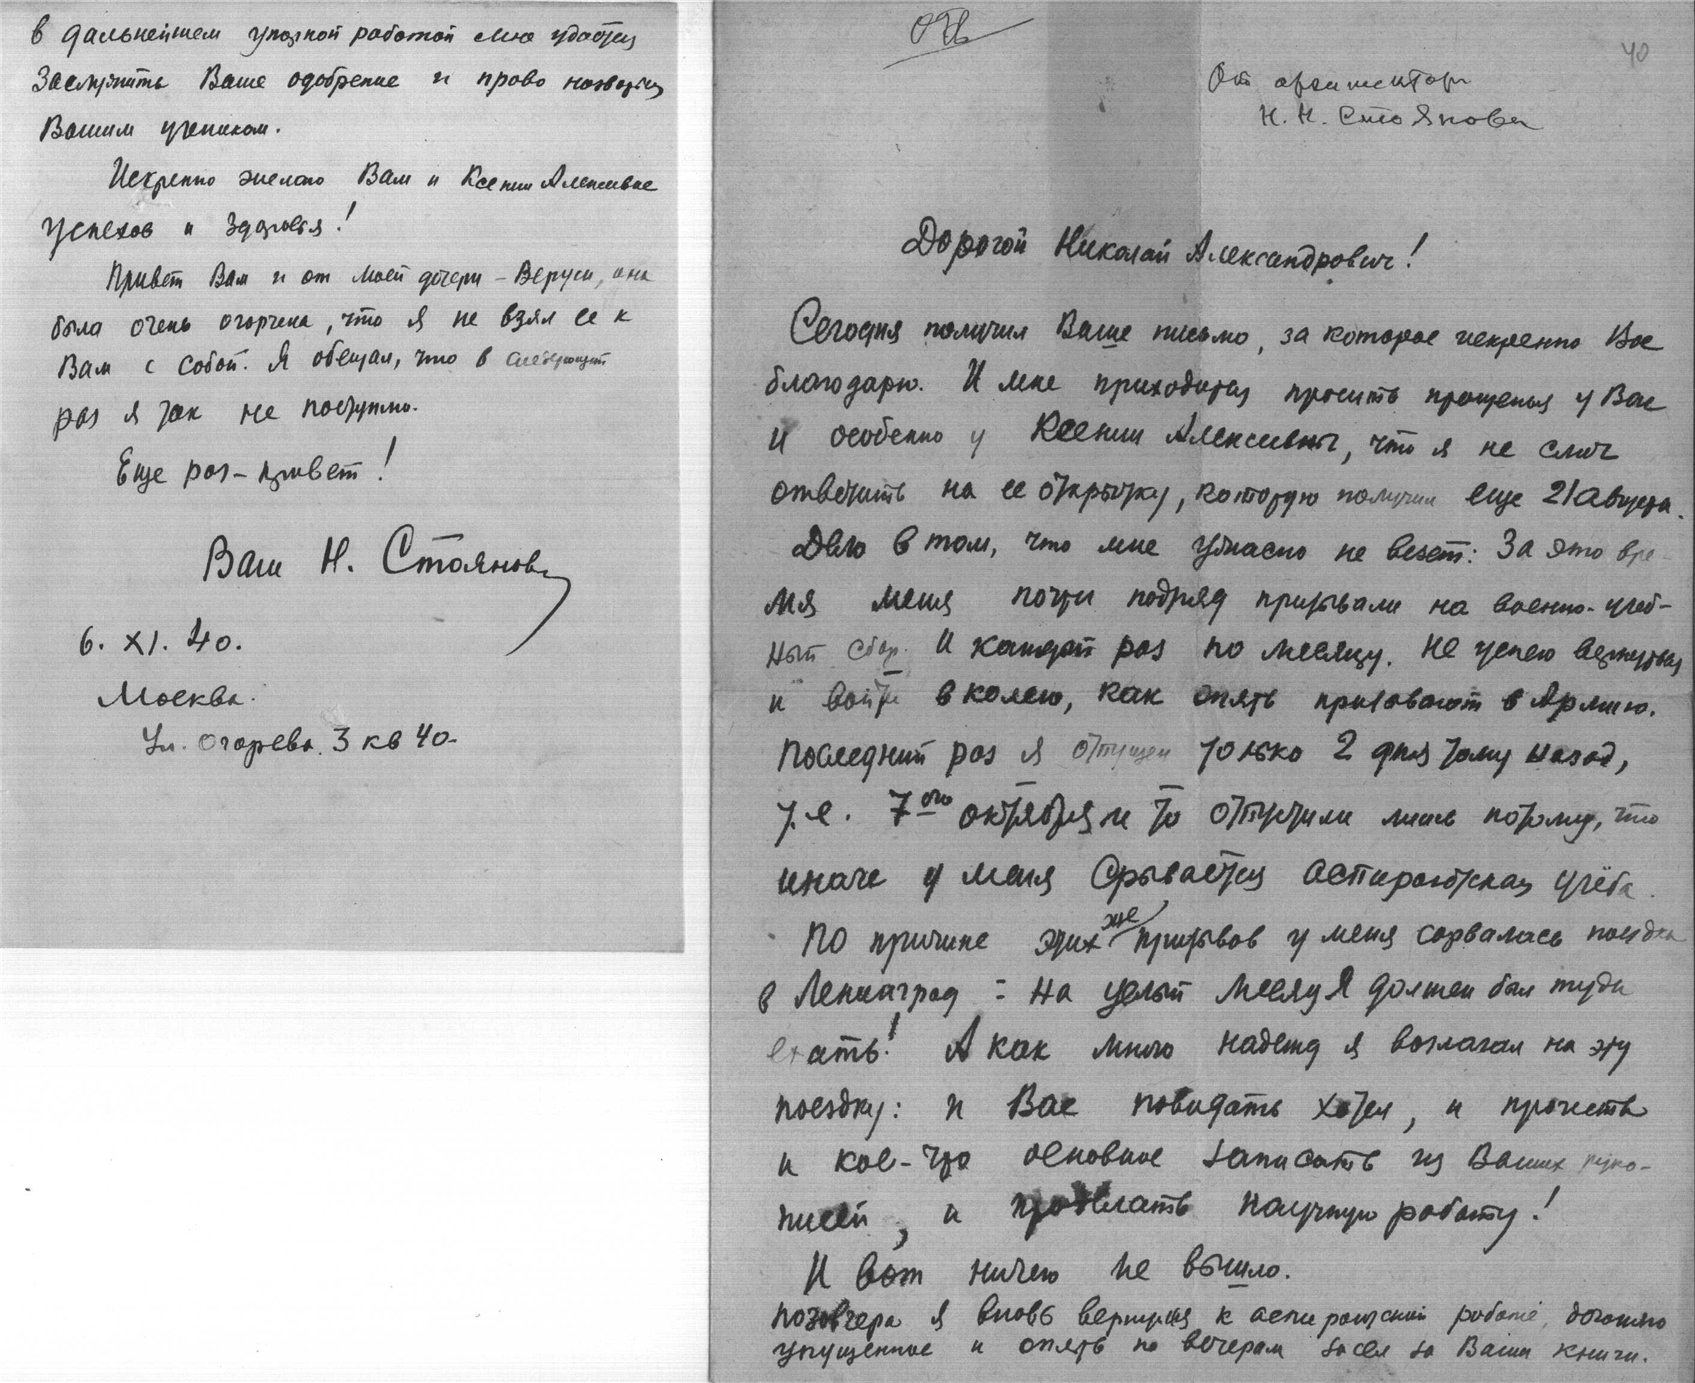 в дальнейшем упорной работой мне удастся
заслужить Ваше одобрение и право назваться
Вашим учеником.
Искренно желаю Вам и Ксении Алексеевне
успехов и здоровья!
Привет Вам и от моей дочери – Веруси, она
была очень огорчена, что я не взял ее к
Вам с собой. Я обещал, что в следующий
раз я так не поступлю.
Еще раз – привет!
Ваш Н. Стоянов
6. XI. 40.
Москва.
Ул. Огарева. 3 кв 40.
40
От архитектора
Н. Н. Стоянова
Дорогой Николай Александрович!
Сегодня получил Ваше письмо, за которое искренно Вас
благодарю. И мне приходится просить прощенья у Вас
и особенно у Ксении Алексеевны, что я не смог
ответить на ее открытку, которую получил еще 21 августа.
Дело в том, что мне ужасно не везет: За это вре-
мя меня почти подряд призывали на военно-учеб-
ный сбор. И каждый раз по месяцу. Не успею вернуться
и войти в колею, как опять призывают в Армию.
Последний раз я отпущен только 2 дня тому назад,
т.е. 7ого октября и то отпустили лишь потому, что
иначе у меня срывается аспирантская учёба.
По причине этих же призывов у меня сорвалась поездка
в Ленинград – на целый месяц я должен был туда
ехать! А как много надежд я возлагал на эту
поездку: и Вас повидать хотел, и прочесть
и кое-что основное записать из Ваших руко-
писей, и проделать научную работу!
И вот ничего не вышло.
Позавчера я вновь вернулся к аспирантской работе, догоняю
упущенное и опять по вечерам засел за Ваши книги.